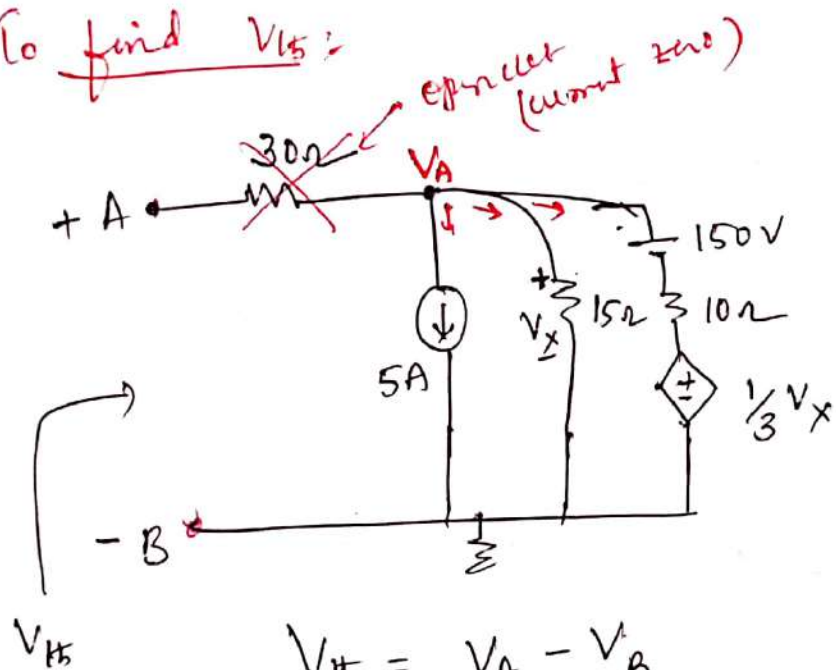 To find Vth :
open ckt
(current zero)
30Ω
VA
+ A
150V
+
Vx
-
15Ω
10Ω
5A
+
-
1/3 Vx
- B
Vth
Vth = VA - VB